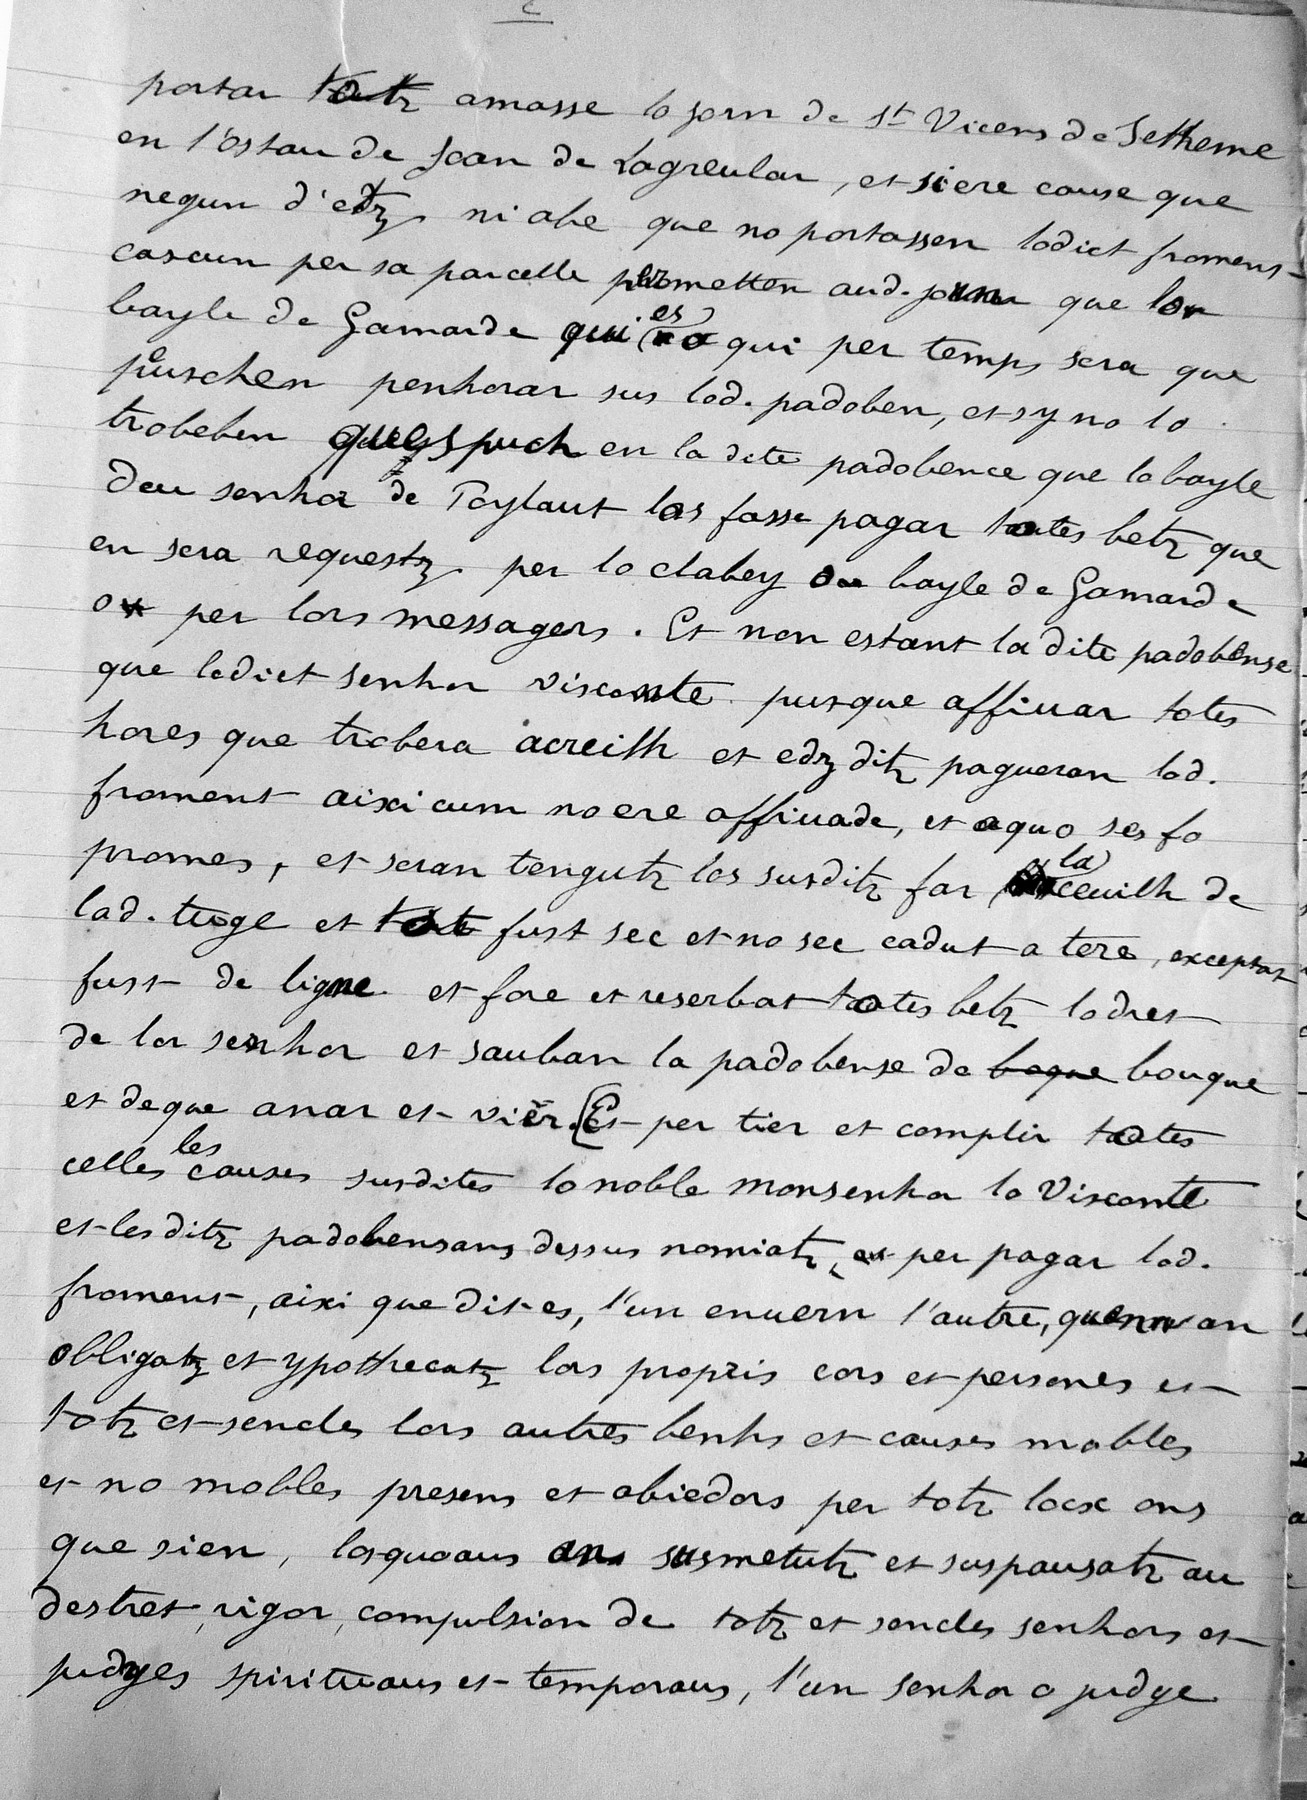 2
portar totz amasse lo jorn de St Vicens de Setheme
en l'ostau de Joan de Lagreular, et si ere cause que
negun d'edz ni abe que no portassen lodict froment
cascun per sa parcelle permetten aud. jorn que lor
bayle de Gamarde qui es qui per temps sera que
puschen penhorar sus lod. padoben, et sy no lo
trobeben que es puch en la dite padobence que lo bayle
deu senhor de Poylaut los fasse pagar totes betz que
en sera requestz per lo clabey o bayle de Gamarde
o per lors messagers. Et non estant la dite padobense
que lodict senhor visconte pusque affiuar totes
hores que trobera acreilh et edz ditz pagueran lod.
froment aixi cum no ere affiuade, et aquo ses fo
promes, et seran tengutz los susditz far la ceuilh de
lad. tuge et tot fust sec et no sec cadut a terre, exceptat
fust de ligne et fore et reserbat totes betz lo dret
de lor senhor et sauban la padobense de boque bouque
et de que anar et vier. [Et per tier et complir totes
celles les causes susdites lo noble monsenhor lo Visconte
et les ditz padobensans dessus nomiatz, et per pagar lod.
froment, aixi que dit es, l'un envern l'autre, quen an
obligatz et ypothecatz lors propris cors et persones et
totz et sencles lors autres benhs et causes mobles
et no mobles presens et abiedors per totz locx ons
que sien, losquoaus an susmetutz et suspausatz au
destret, rigor, compulsion de totz et sencles senhors et
judges spirituaus et temporaus, l'un senhor o judge